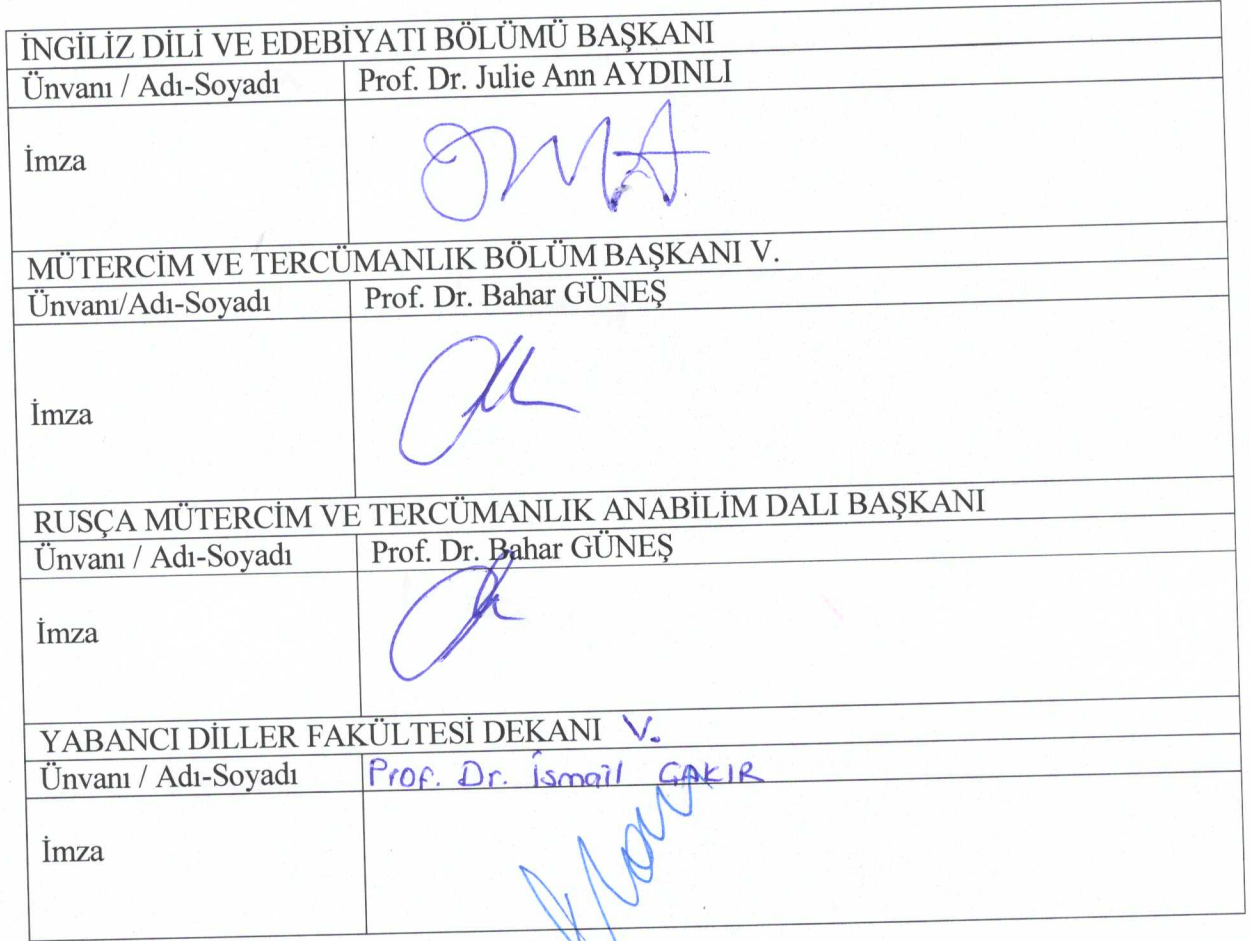 İNGİLİZ DİLİ VE EDEBİYATI BÖLÜMÜ BAŞKANI
Ünvanı / Adı-Soyadı Prof. Dr. Julie Ann AYDINLI
İmza
MÜTERCİM VE TERCÜMANLIK BÖLÜM BAŞKANI V.
Ünvanı/Adı-Soyadı Prof. Dr. Bahar GÜNEŞ
İmza
RUSÇA MÜTERCİM VE TERCÜMANLIK ANABİLİM DALI BAŞKANI
Ünvanı / Adı-Soyadı Prof. Dr. Bahar GÜNEŞ
İmza
YABANCI DİLLER FAKÜLTESİ DEKANI V.
Ünvanı / Adı-Soyadı Prof. Dr. İsmail ÇAKIR
İmza